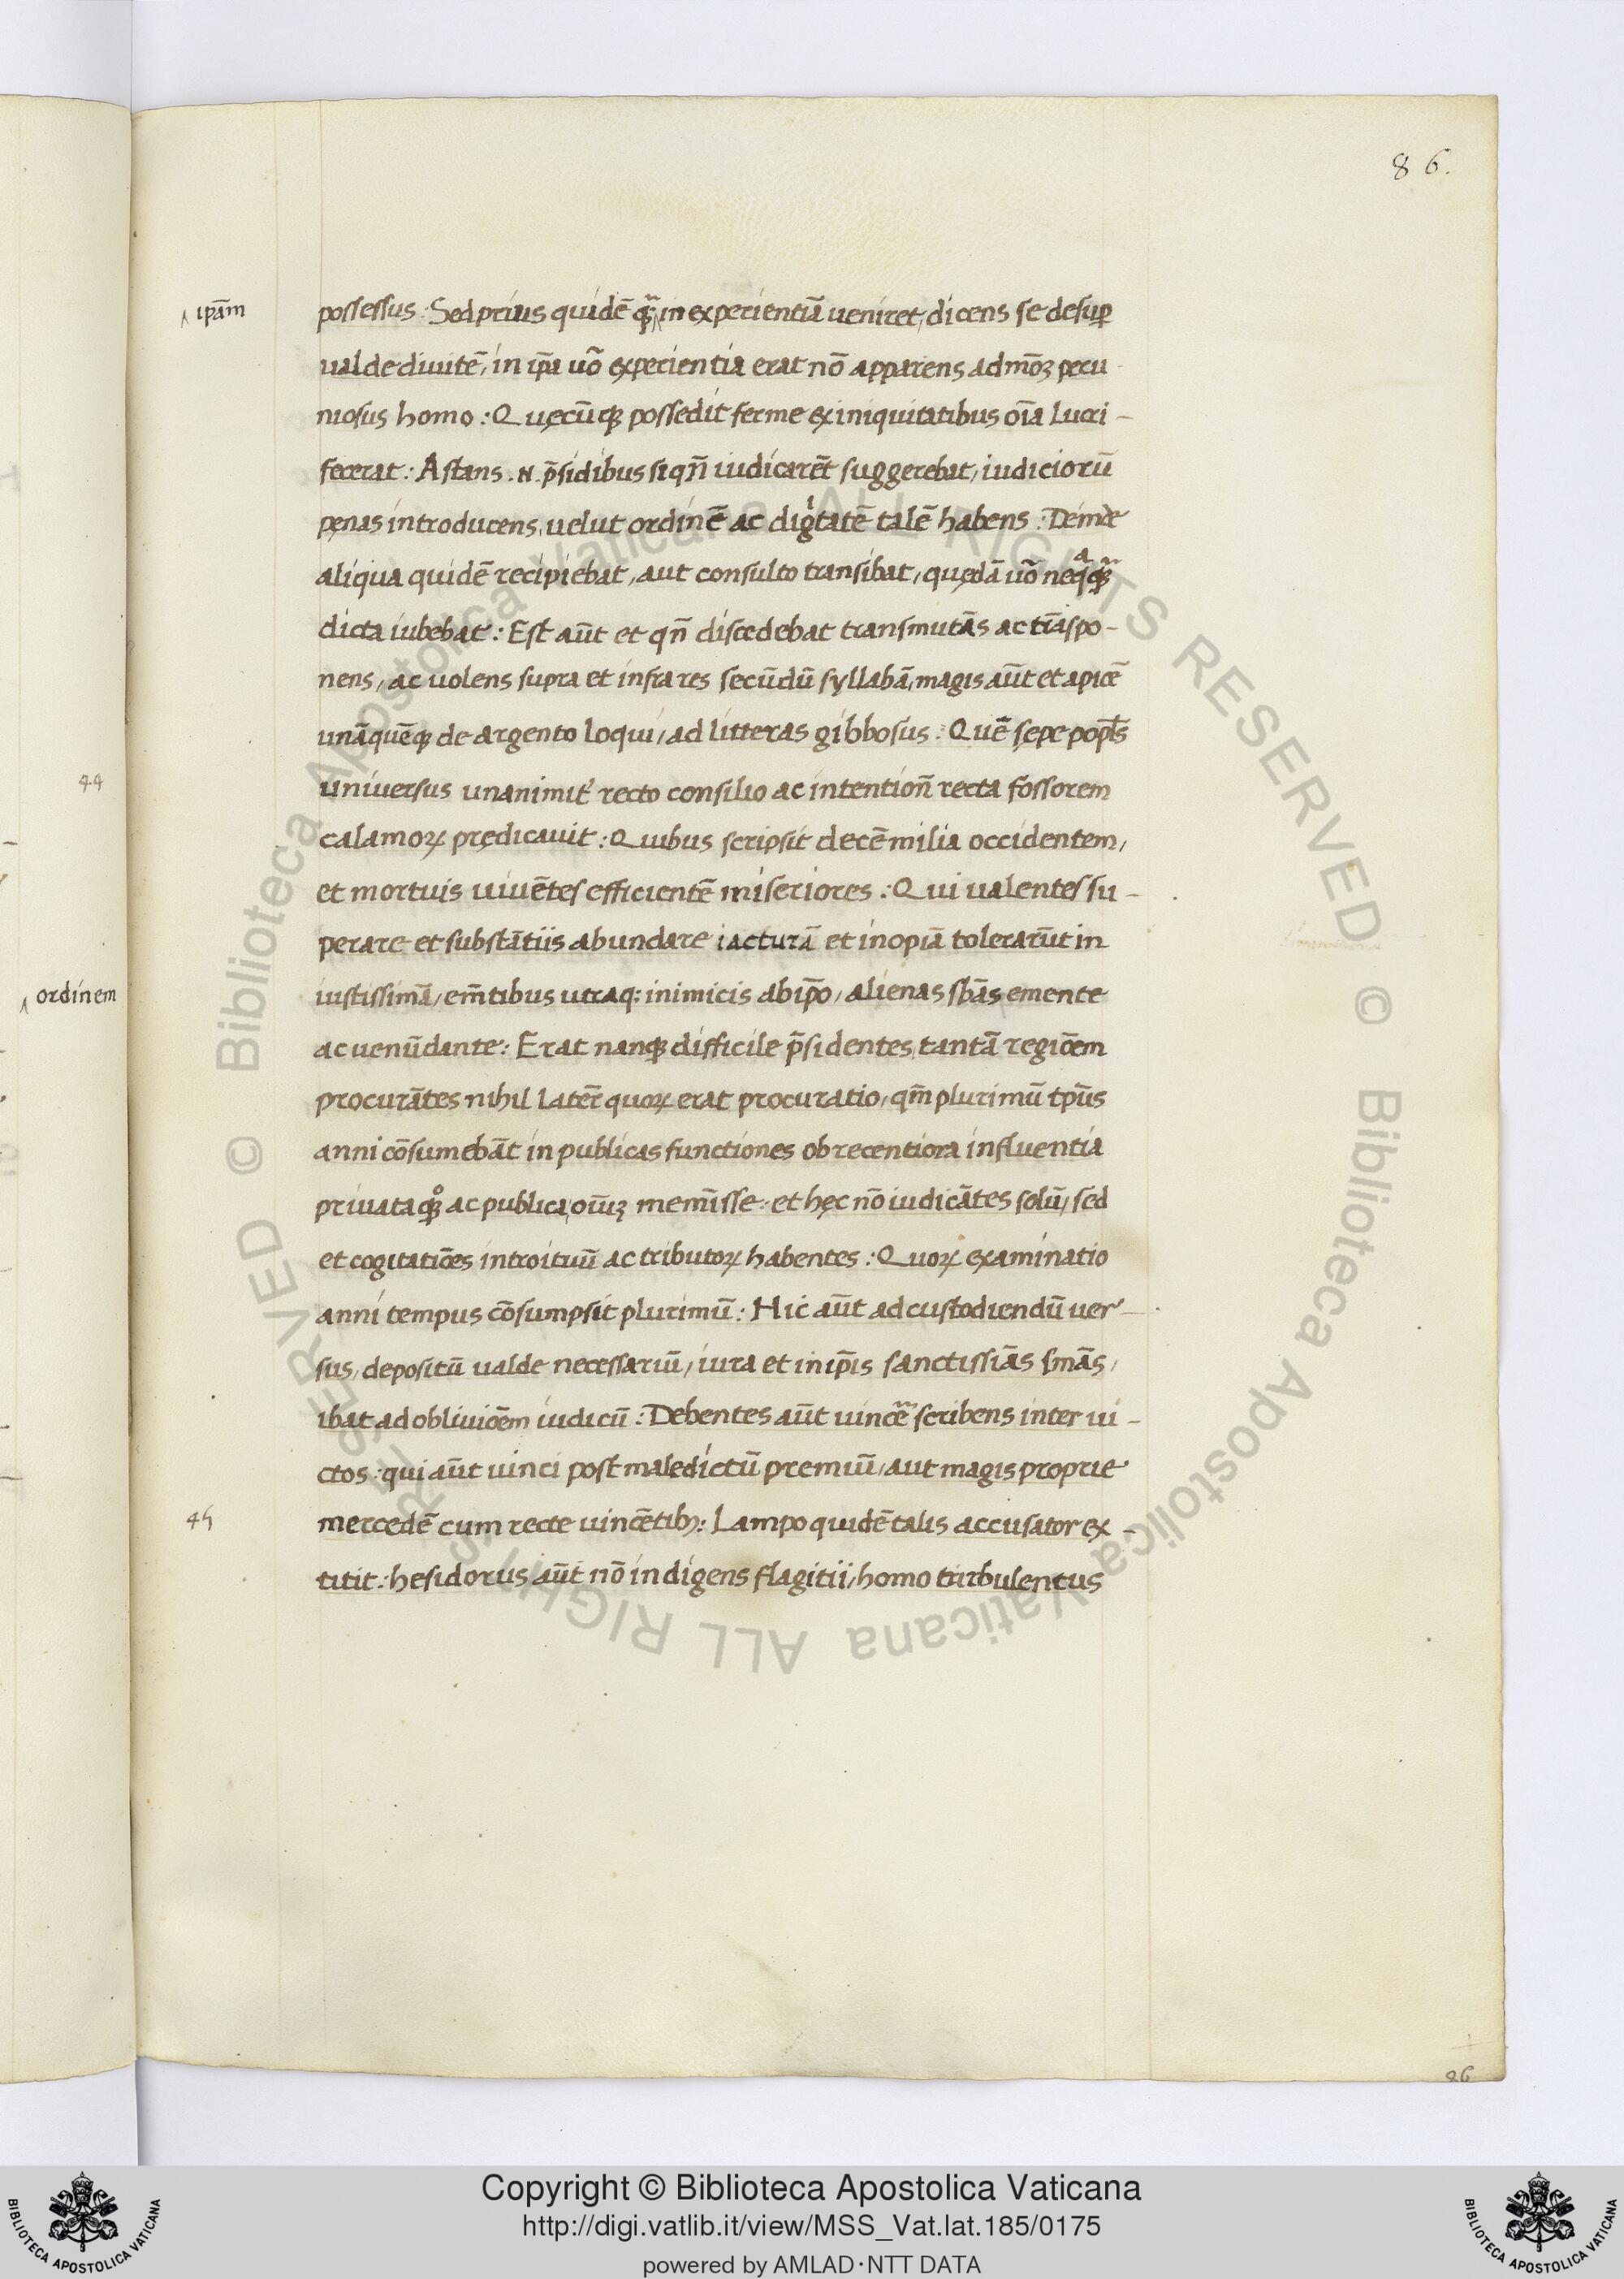 86.
ıpãm
possessus : Sed prius quidẽ qꝫ̃ in experientiã veniret, dicens se desuꝑ
valde divitẽ, in ip̃a võ experientia erat nõ apparens admõꝫ pecu
niosus homo : Quęcũqꝫ possedit ferme ex iniquitatibus oĩa lucri -
fecerat : Astans .N. p̃sidibus si qñ iudicarẽt suggerebat, iudiciorũ
pęnas introducens, velut ordinẽ ac digitatẽ talẽ habens : Deinde
aliqua quidẽ recipiebat, aut consulto transibat, quędã võ neqaqꝫ̃
dicta iubebat : Est aũt et qñ discedebat transmutãs ac trãspo -
nens, ac volens supra et infra res secũdũ syllabã, magis aũt et apicẽ
unãquẽqꝫ de argento loqui, ad litteras gibbosus : Quẽ sępe popl̃s
44
universus unanimiť recto consilio ac intentioñ recta fossorem
calamoꝝ prędicavit : Quibus scripsit decẽ milia occidentem,
et mortuis vivẽtes efficientẽ miseriores : Qui valentes su -
perare et substãtiis abundare iacturã et inopiã tolerarũt in
ordinem
iustissimã, em̃tibus utraqꝫ inimicis ab ip̃o, alienas sb̃as emente
ac venũdante : Erat nanqꝫ difficile p̃sidentes tantã regiõem
procurãtes nihil later̃ quoꝝ erat procuratio, qm̃ plurimũ tp̃us
anni cõsumebãt in publicas functiones ob recentiora influentia
privata qꝫ̊ ac publica, oĩuꝫ memĩsse : et hęc nõ iudicãtes solũ, sed
et cogitatiões introituũ ac tributoꝝ habentes : Quoꝝ examinatio
anni tempus cõsumpsit plurimũ : Hic aũt ad custodiendũ ver -
sus, depositũ valde necessariũ, iura et in ip̃is sanctissiãs sm̃as,
ibat ad obliviõem iudicũ : Debentes aũt vincẽ scribens inter vi -
ctos : qui aũt vinci post maledictũ premiũ, aut magis proprie
45
mercedẽ cum recte vincẽtibꝫ : Lampo quidẽ talis accusator ex -
titit : hesidorus aũt nõ indigens flagitii, homo turbulentus
86
Copyright © Biblioteca Apostolica Vaticana
http://digi.vatlib.it/view/MSS_Vat.lat.185/0175
powered by AMLAD·NTT DATA
BIBLIOTECA APOSTOLICA VATICANA
BIBLIOTECA APOSTOLICA VATICANA
© Biblioteca Apostolica Vaticana ALL RIGHTS RESERVED
© Biblioteca Apostolica Vaticana ALL RIGHTS RESERVED